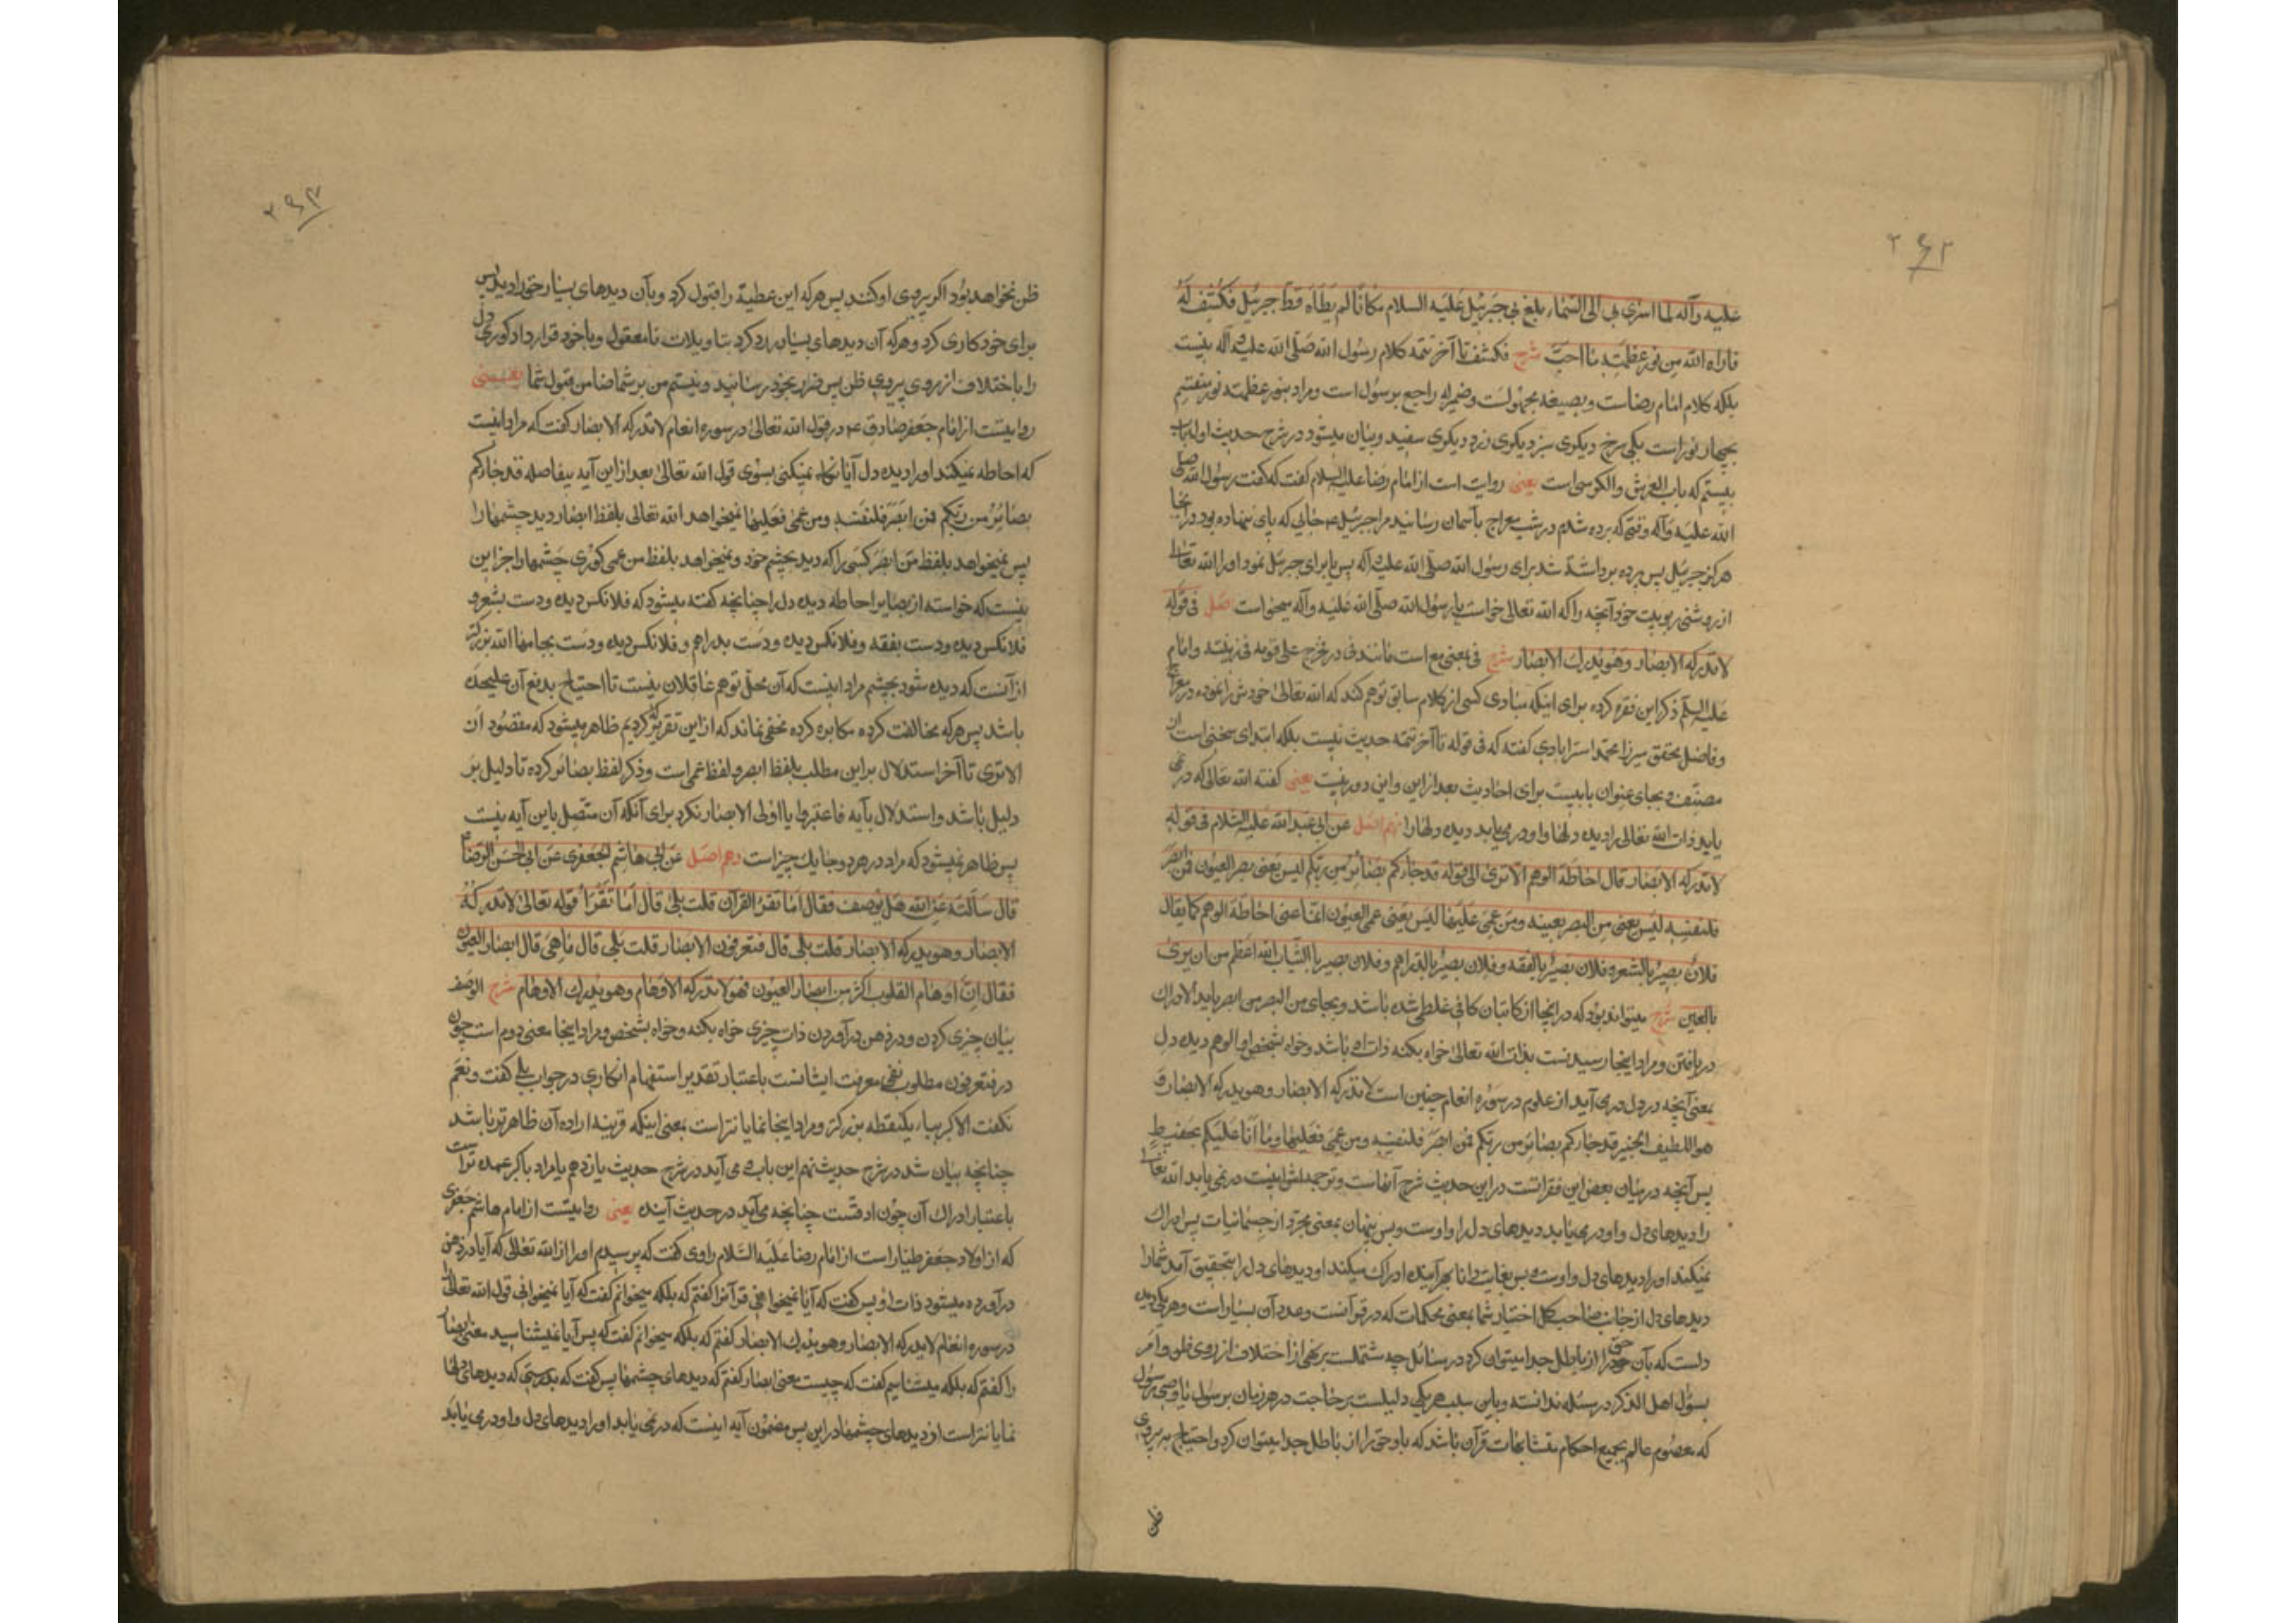 ۲۶۲
علیه وآله لما اسری بی الی السّماء بلغ بی جبرئیل علیه السلام مکانًا لم یطأه قط جبرئیل فکشف له
فاراه الله من نور عظمته ما احبّ شرح فکشف تا آخر تتمه کلام رسول الله صلّی الله علیه وآله نیست
بلکه کلام امام رضاست و بصیغه مجهولست وضمیر له راجع برسول است ومراد بنور عظمته نور منقسم
بچهار نور است یکی سرخ دیکری سبز دیکری زرد دیکری سفید وبیان میشود در شرح حدیث اول باب
بیستم که باب العرش والکرسی است یعنی روایت است از امام رضا علیه السلام گفت که گفت رسول الله صلی
الله علیه وآله وقتی که برده شدم در شب معراج بآسمان رسانید مرا جبرئیل ع جایی که پای ننهاده بود در آنجا
هرکز جبرئیل پس پرده برداشته شد برای رسول الله صلّی الله علیه وآله پس یا برای جبرئیل نمود او را الله تعالی
از روشنی ربوبیت خود آنچه را که الله تعالی خواست یا رسول الله صلّی الله علیه وآله میخواست اصل فی قوله
لا تدرکه الابصار وهو یدرک الابصار شرح فی بمعنی مع است مانند فی در فخرج علی قومه فی زینته وامام
علیه السلم ذکر این فقره کرده برای اینکه مبادی کسی از کلام سابق توهم کند که الله تعالی خودش را نموده در معراج
وفاضل محقق میرزا محمد استرابادی گفته که فی قوله تا آخر تتمه حدیث نیست بلکه ابتدای سخنی است از
مصنّف و بجای عنوان بابیست برای احادیث بعد از این واین دور نیست یعنی گفته الله تعالی که در نمی
یابد ذات الله تعالی را دیده دلها واو در می یابد دیده دلها را نهم اصل عن ابی عبد الله علیه السلام فی قوله
لا تدرکه الابصار قال احاطة الوهم الا تری الی قوله قد جاءکم بصائر من ربکم لیس یعنی بصر العیون فمن ابصر
فلنفسه لیس یعنی من البصر بعینه ومن عمی علیها لیس یعنی عمی العیون انما عنی احاطة الوهم کما یقال
فلانٌ بصیرٌ بالشعر وفلان بصیرٌ بالفقه وفلان بصیرٌ بالدراهم وفلان بصیر بالثیاب الله اعظم من ان یری
بالعین شرح میتواند بود که در اینجا از کاتبان کافی غلطی شده باشد وبجای من البصر من ابصر باید الادراک
دریافتن ومراد اینجا رسیدنست بذات الله تعالی خواه بکنه ذات او باشد وخواه بشخص او الوهم دیده دل
بمعنی آنچه در دل درمی آید از علوم در سوره انعام چنین است لا تدرکه الابصار وهو یدرک الابصار و
هو اللطیف الخبیر قد جاءکم بصائر من ربکم فمن ابصر فلنفسه ومن عمی فعلیها وما انا علیکم بحفیظ
پس آنچه در میان بعض این فقراتست در این حدیث شرح آنهاست وترجمه اش اینست در نمی یابد الله تعالی
را دیدهای دل واو در می یابد دیدهای دل را واوست وبس پنهان بمعنی مجرّد از جسمانیات پس ادراک
نمیکنند او را دیدهای دل واوست وبس بغایت دانا بهر آینده ادراک میکند او دیدهای دل را بتحقیق آمد شما را
دیدهای دل از جانب صاحب کل اختیار شما بمعنی محکمات که در قرآنست وعدد آن بسیار است وهر یکی دیده
دلست که بآن حق را از باطل جدا میتوان کرد در مسائل چه مشتملست بر نهی از اختلاف از روی ظن وامر
بسؤال اهل الذکر در مسئله ندانسته وباین سبب هر یکی دلیلست بر حاجت در هر زمان برسول یا وصی رسول
که معصوم عالم بجمیع احکام متشابهات قرآن باشد که باو حق را از باطل جدا میتوان کرد واحتیاج به پیروی
ظن
۲۶۳
ظن نخواهد بود اگر پیروی او کنند پس هر که این عطیه را قبول کرد وبآن دیدهای بسیار حق را دید پس
برای خود کاری کرد وهر که آن دیدهای بسیار رد کرد بتاویلات نامعقول وباخود قرار داد کوری دل
را باختلاف از روی پیروی ظن پس ضرر بخود رسانید ونیستم من بر شما ضامن قبول شما یعنی
روایتست از امام جعفر صادق ع در قول الله تعالی در سوره انعام لا تدرکه الابصار گفت که مراد اینست
که احاطه نمیکند او را دیده دل آیا نگاه نمیکنی بسوی قول الله تعالی بعد از این آیه بیفاصله قد جاءکم
بصائر من ربکم فمن ابصر فلنفسه ومن عمی فعلیها نمیخواهد الله تعالی بلفظ ابصار دید چشمها را
پس نمیخواهد بلفظ من ابصر کسی را که دید بچشم خود ونمیخواهد بلفظ من عمی کوری چشمها را جز این
نیست که خواسته از بصایر احاطه دیده دل را چنانچه گفته میشود که فلانکس دیده ودست بشعر و
فلانکس دیده ودست بفقه وفلانکس دیده ودست بدراهم وفلانکس دیده ودست بجامها الله بزرکتر
از آنست که دیده شود بچشم مراد اینست که آن محل توهم عاقلان نیست تا احتیاج بدفع آن علیحده
باشد پس هر که مخالفت کرده مکابره کرده مخفی نماند که از این تقریر که کردیم ظاهر میشود که مقصود از
الا تری تا آخر استدلال بر این مطلب بلفظ ابصر ولفظ عمی است وذکر لفظ بصائر کرده تا دلیل بر
دلیل باشد واستدلال بآیه فاعتبروا یا اولی الابصار نکرد برای آنکه آن متصل باین آیه نیست
پس ظاهر نمیشود که مراد در هر دو جا یک چیز است دهم اصل عن ابی هاشم الجعفری عن ابی الحسن الرضا ع
قال سألته عن الله هل یوصف فقال اما تقرء القرآن قلت بلی قال اما تقرأ قوله تعالی لا تدرکه
الابصار وهو یدرک الابصار قلت بلی قال فتعرفون الابصار قلت بلی قال ما هی قال ابصار العیون
فقال ان اوهام القلوب اکبر من ابصار العیون فهو لا تدرکه الاوهام وهو یدرک الاوهام شرح الوصف
بیان چیزی کردن ودر ذهن درآوردن ذات چیزی خواه بکنه وخواه بشخص ومراد اینجا معنی دوم است چون
در فتعرفون مطلوب نفی معرفت ایشانست باعتبار تقدیر استفهام انکاری در جواب بلی گفت ونعم
نگفت الاکبر بباء یکنقطه بزرکتر ومراد اینجا نمایان تر است بمعنی اینکه قرینه اراده آن ظاهرتر باشد
چنانچه بیان شد در شرح حدیث نهم این باب ومی آید در شرح حدیث یازدهم یا مراد باکبر عمده تر است
باعتبار ادراک آن چون ادقست چنانچه می آید در حدیث آینده یعنی روایتست از امام هاشم جعفری
که از اولاد جعفر طیار است از امام رضا علیه السّلام راوی گفت که پرسیدم او را از الله تعالی که آیا در ذهن
درآورده میشود ذات او پس گفت که آیا نمیخوانی قرآن را گفتم که بلکه میخوانم گفت که آیا نمیخوانی قول الله تعالی را
در سوره انعام لا تدرکه الابصار وهو یدرک الابصار گفتم که بلکه میخوانم گفت که پس آیا میشناسید معنی ابصار
را گفتم که بلکه میشناسیم گفت که چیست معنی ابصار گفتم که دیدهای چشمها پس گفت که بدرستی که دیدهای دلها
نمایان تر است از دیدهای چشمها در این پس مضمون آیه اینست که در نمی یابد او را دیدهای دل واو در می یابد